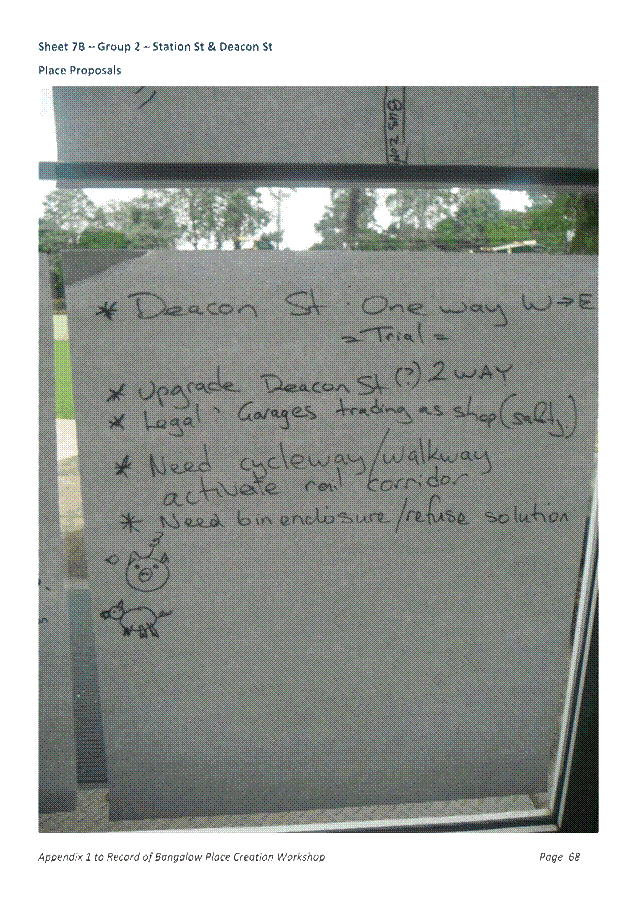 Sheet 7B – Group 2 – Station St & Deacon St
Place Proposals
BUS ZON
* Deacon St · One way W→E
= Trial =
* Upgrade Deacon St (?) 2 WAY
* Legal: Garages trading as shop (salty.)
* Need cycleway/walkway
activate rail corridor
* Need bin enclosure/refuse solution
Appendix 1 to Record of Bangalow Place Creation Workshop
Page 68